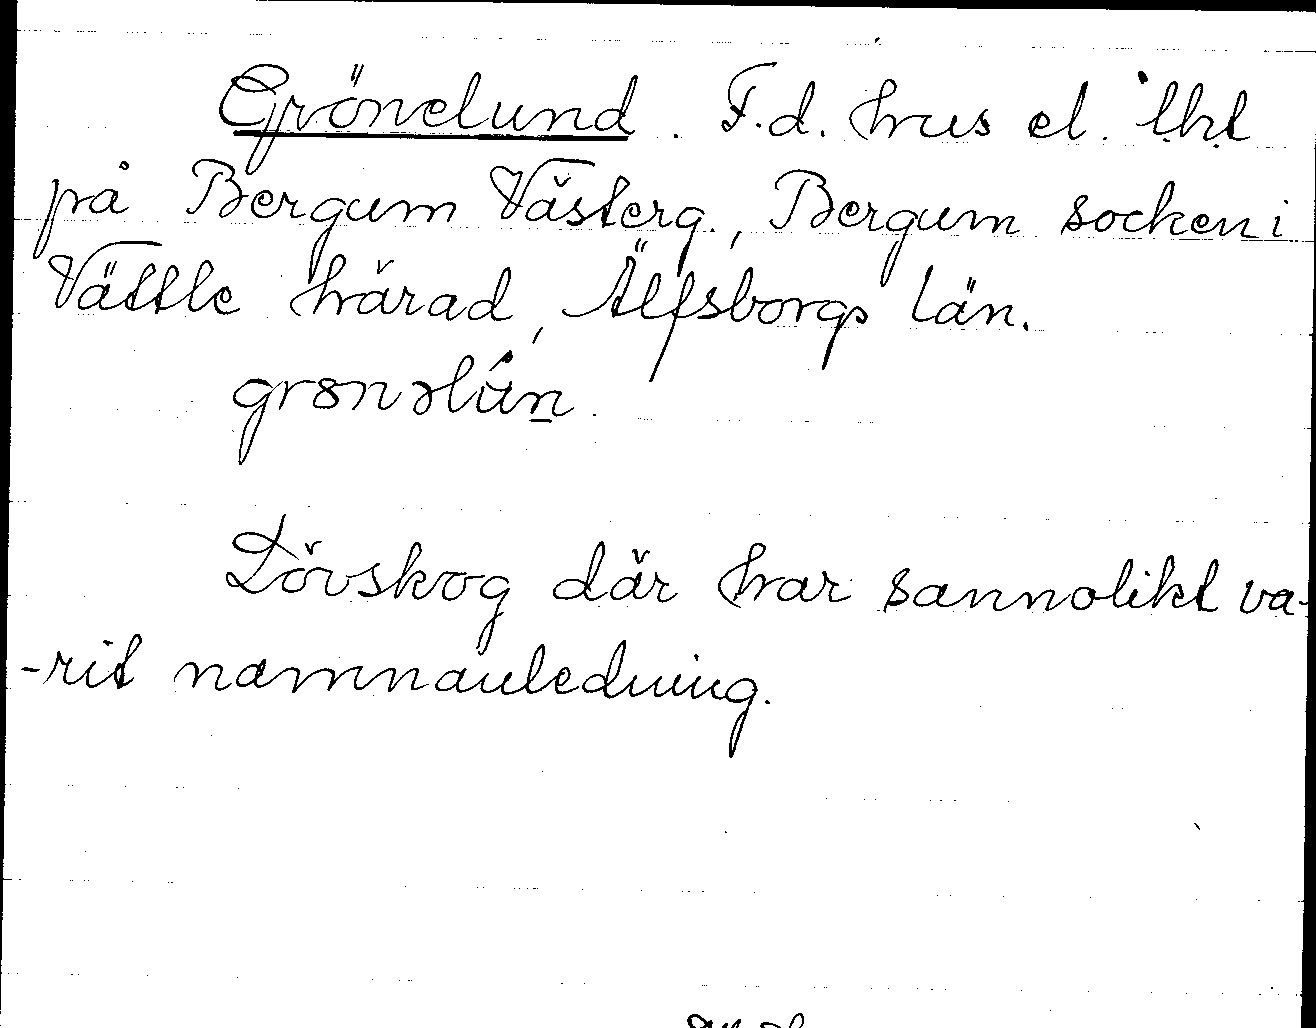 Grönelund. F.d. hus el. lht
på Bergum Västerg., Bergum socken i
Vättle härad, Älfsborgs län.
grönəlún
Lövskog där har sannolikt va-
-rit namnanledning.